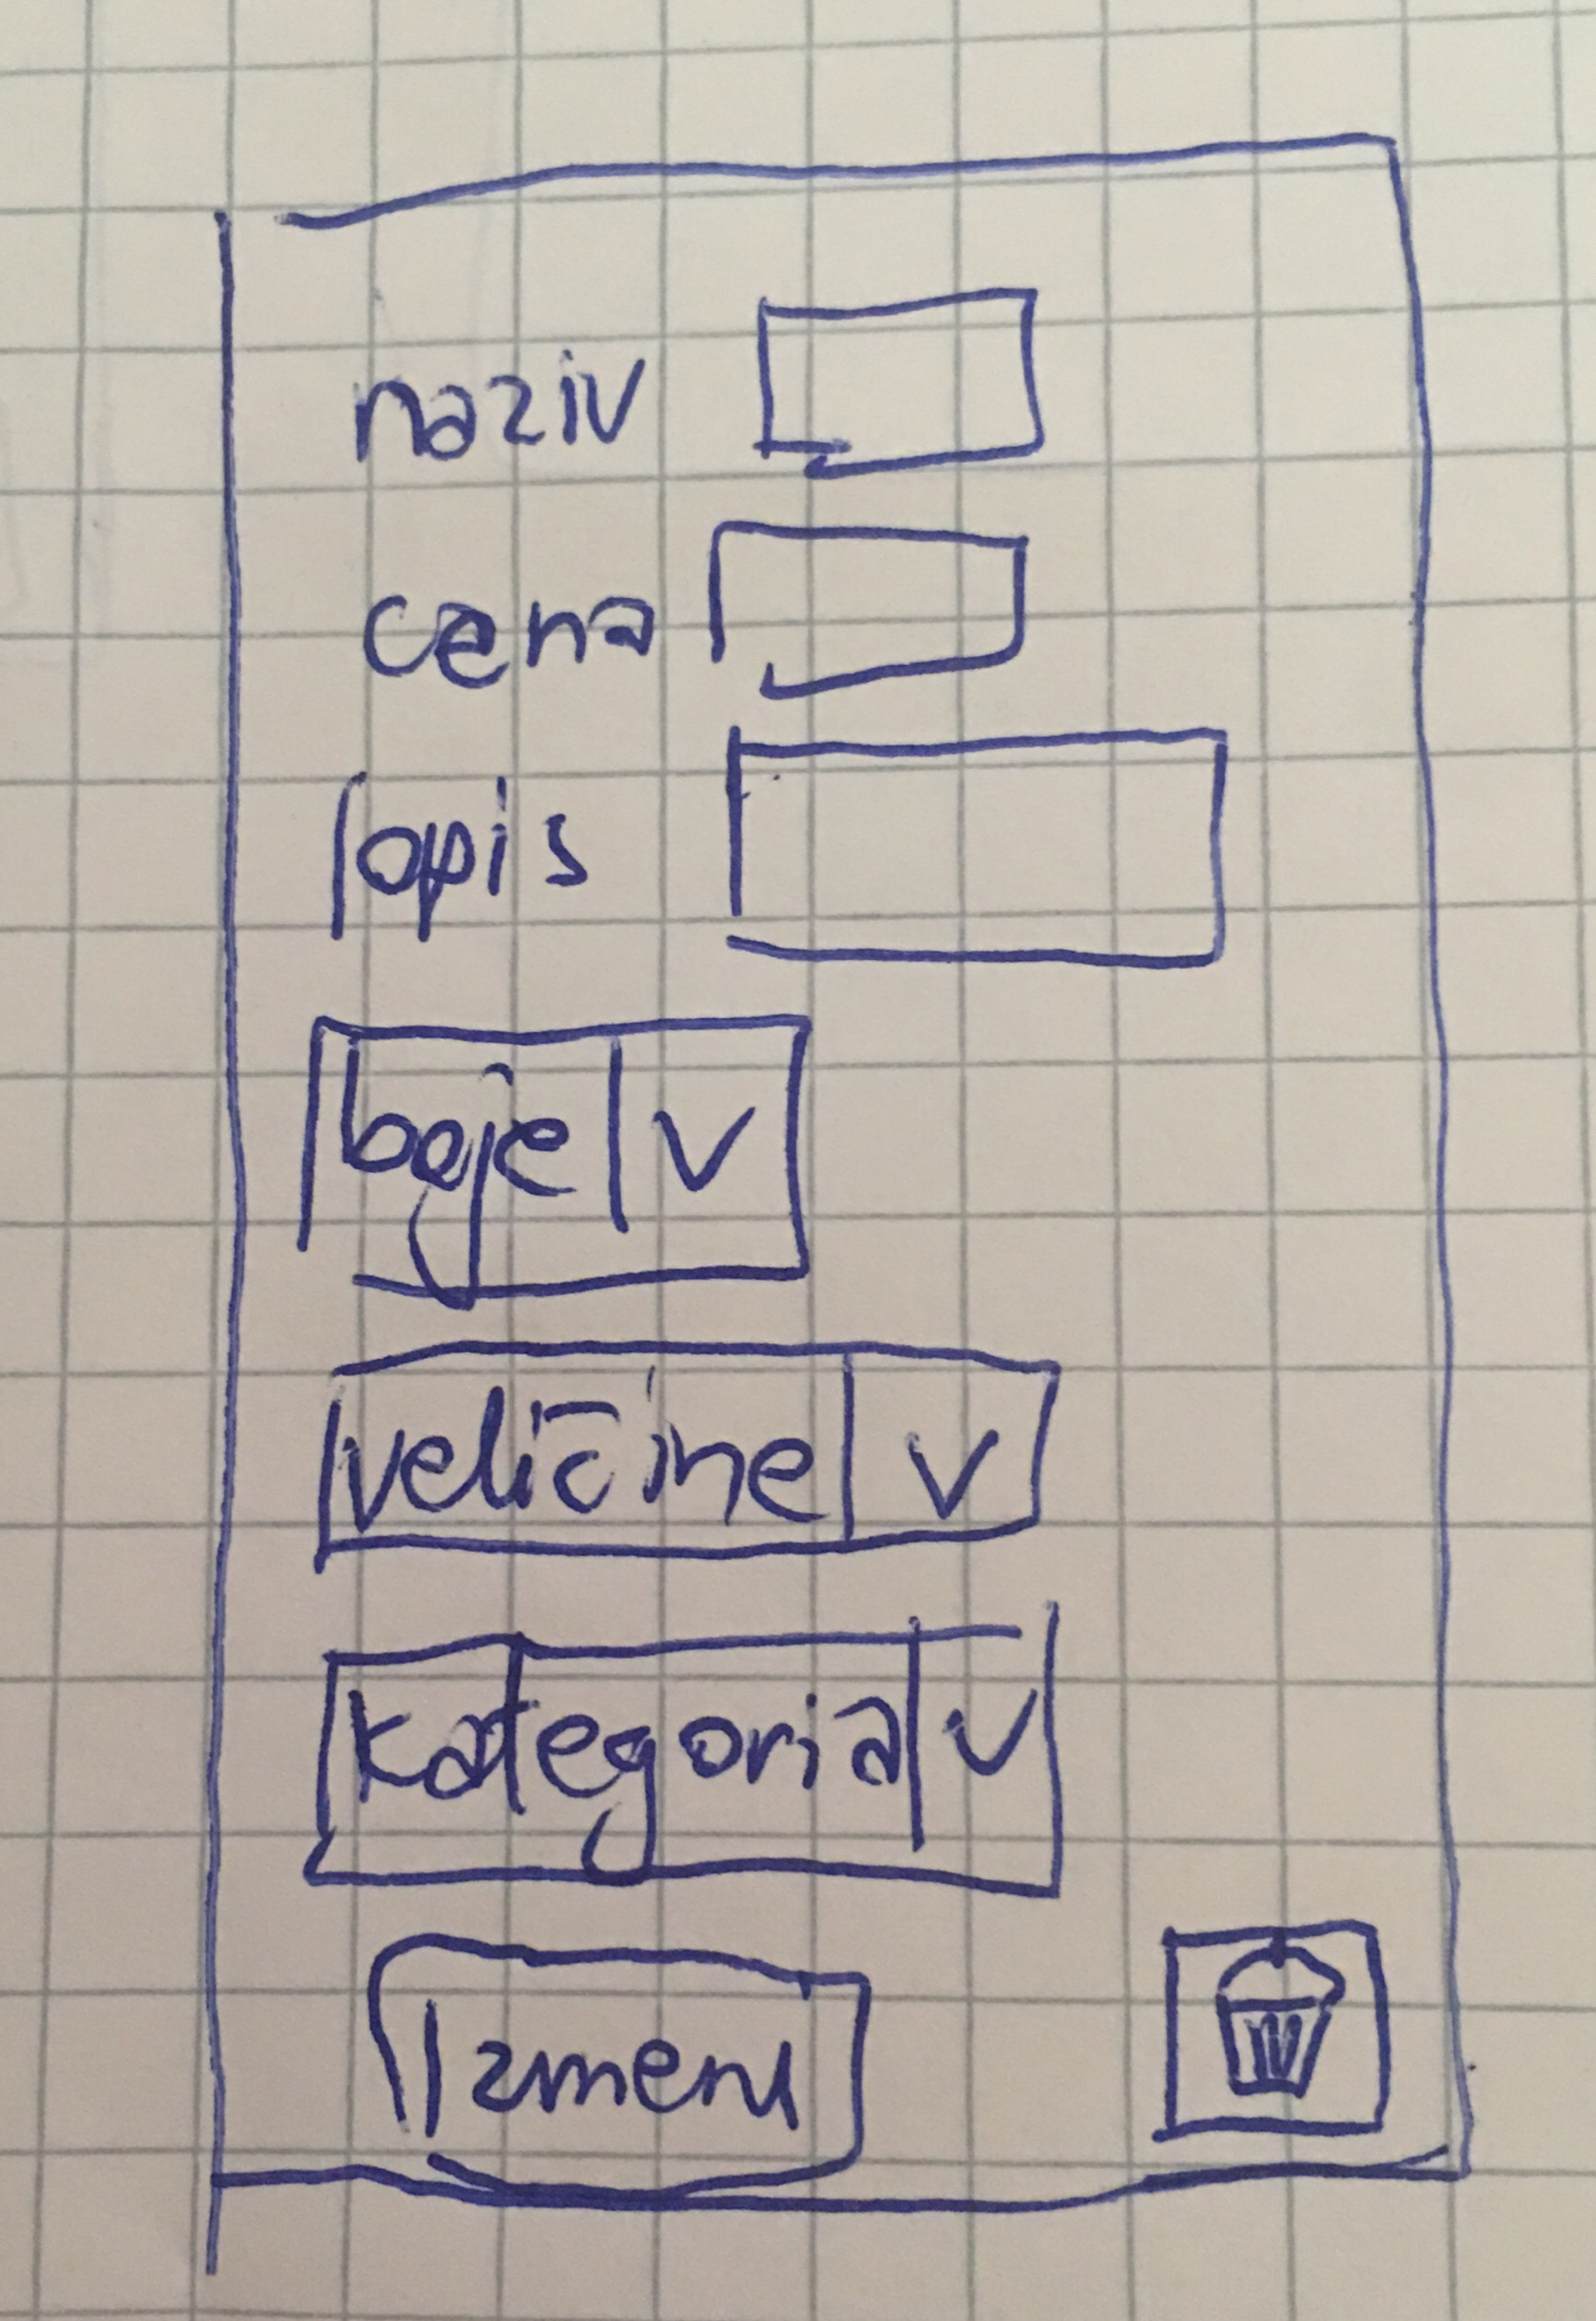 naziv
cena
opis
boje v
veličine v
kategoria v
Izmeni